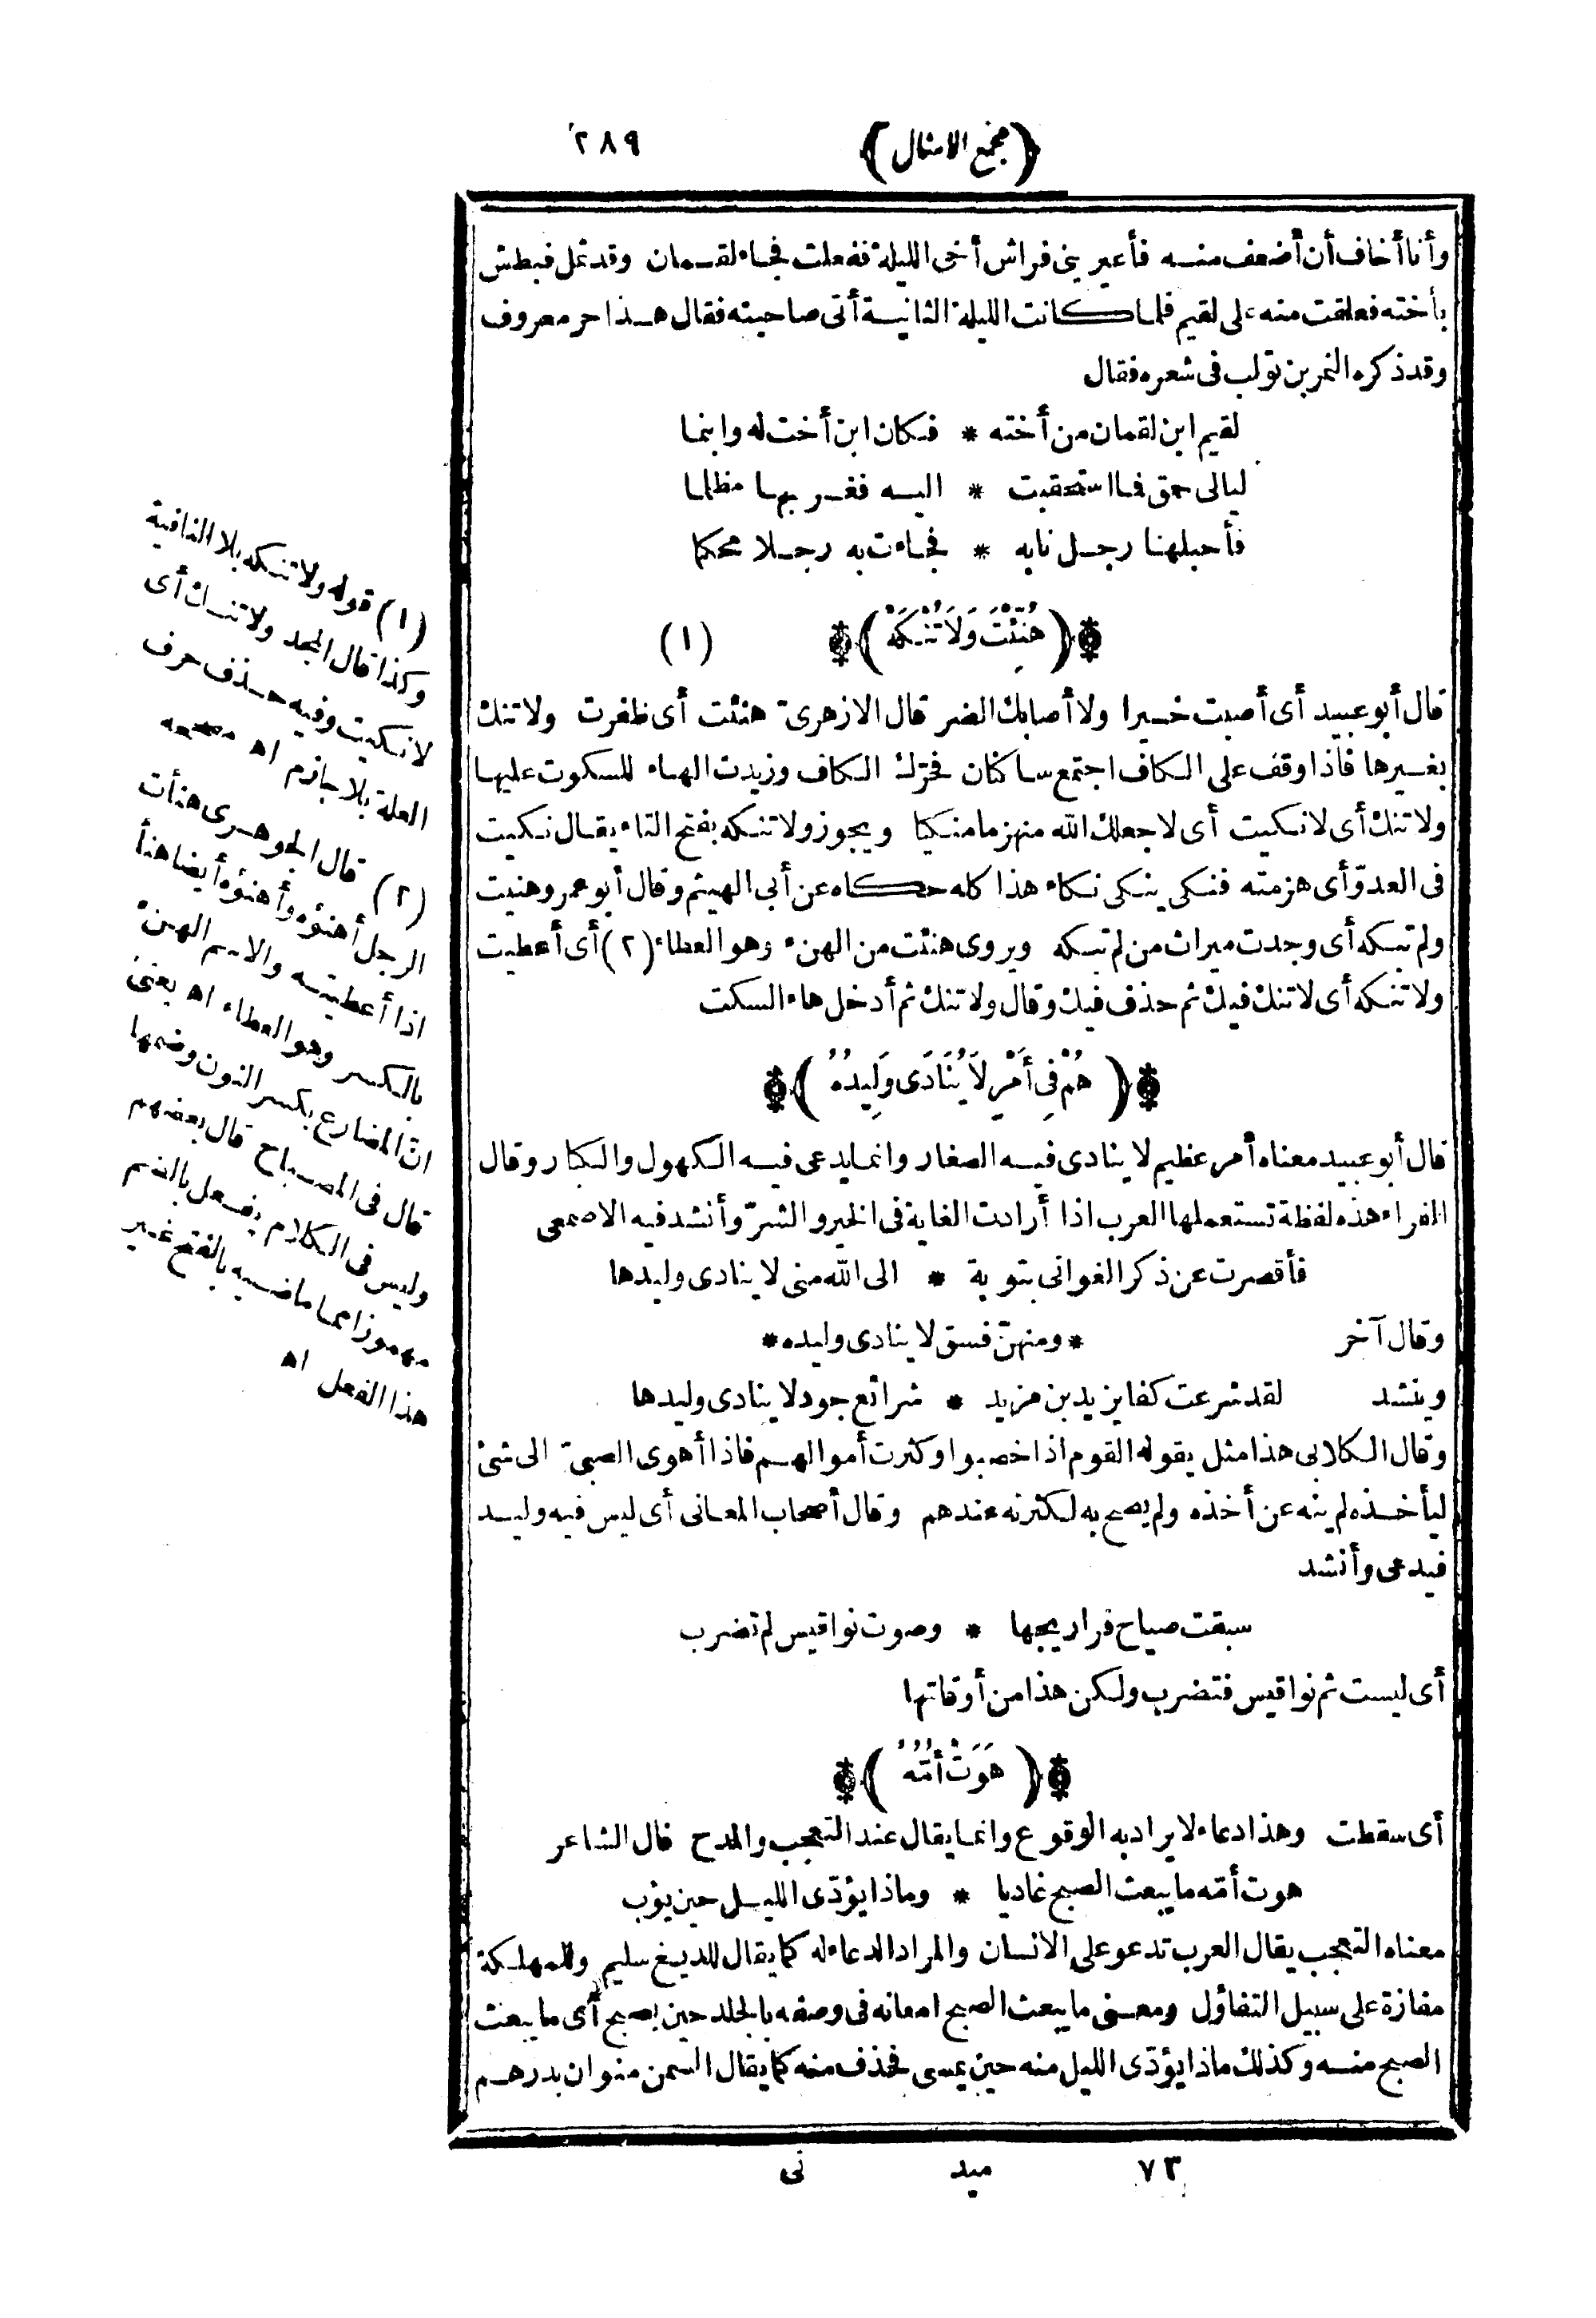 ﴿مجمع الامثال﴾ ٢٨٩
وأنا أخاف أن أضعف منه فأعيريني فراش أختى الليلة ففعلت فجاء لقمان وقد ثمل فبطش
بأخته فعلقت منه على لقيم فلما كانت الليلة الثانية أتى صاحبته فقال هذا حر معروف
وقد ذكره النمر بن تولب فى شعره فقال
لقيم ابن لقمان من أخته * فكان ابن أخت له وابنما
ليالى حمق فما استحقبت * اليه فغر بها مظلما
فأحبلها رجل نابه * فجاءت به رجلا محكما
﴿هُنِّئْتَ وَلَا تُنْكَهْ﴾ (١)
قال أبو عبيد أى أصبت خيرا ولا أصابك الضر قال الازهرىّ هنئت أى ظفرت ولا تنك
بغيرها فاذا وقف على الكاف اجتمع ساكنان فحرّك الكاف وزيدت الهاء للسكوت عليها
ولا تنك أى لا نكيت أى لا جعلك الله منهزما منكيا ويجوز ولا تنكه بفتح التاء يقال نكيت
فى العدوّ أى هزمته فنكى ينكى نكاء هذا كله حكاه عن أبى الهيثم وقال أبو عمرو هنيت
ولم تبكه أى وجدت ميراث من لم تبكه ويروى هنئت من الهنء وهو العطاء (٢) أى أعطيت
ولا تنكه أى لا تنك فيك ثم حذف فيك وقال ولا تنك ثم أدخل هاء السكت
﴿هُمْ فِى أَمْرٍ لَا يُنَادَى وَلِيدُهُ﴾
قال أبو عبيد معناه أمر عظيم لا ينادى فيه الصغار وانما يدعى فيه الكهول والكبار وقال
الفراء هذه لفظة تستعملها العرب اذا أرادت الغاية فى الخير والشرّ وأنشد فيه الاصمعى
فأقصرت عن ذكر الغوانى بتوبة * الى الله منى لا ينادى وليدها
وقال آخر * ومنهنّ فسق لا ينادى وليده *
وينشد لقد شرعت كفا يزيد بن مزيد * شرائع جود لا ينادى وليدها
وقال الكلابى هذا مثل يقوله القوم اذا خصبوا وكثرت أموالهم فاذا أهوى الصبىّ الى شئ
ليأخذه لم ينه عن أخذه ولم يصح به لكثرته عندهم وقال أصحاب المعانى أى ليس فيه وليد
فيدعى وأنشد
سبقت صياح فراريجها * وصوت نواقيس لم تضرب
أى ليست ثم نواقيس فتضرب ولكن هذا من أوقاتها
﴿هَوَتْ أُمُّهُ﴾
أى سقطت وهذا دعاء لا يراد به الوقوع وانما يقال عند التعجب والمدح قال الشاعر
هوت أمّه ما يبعث الصبح غاديا * وماذا يؤدّى الليل حين يؤب
معناه التعجب يقال العرب تدعو على الانسان والمراد الدعاء له كما يقال للديغ سليم وللمهلكة
مفازة على سبيل التفاؤل ومعنى ما يبعث الصبح امعانه فى وصفه بالجلد حين يصبح أى ما يبعث
الصبح منه وكذلك ماذا يؤدّى الليل منه حين يمسى فحذف منه كما يقال السمن منوان بدرهم
٧٣ ميد نى
(١) قوله ولا تنكه بلا النافية
وكذا قال المجد ولا تنك أى
لا نكيت وفيه حذف حرف
العلة بلا جازم اه مصححه
(٢) قال الجوهرى هنأت
الرجل أهنؤه وأهنئه أيضا هنأ
اذا أعطيته والاسم الهنء
بالكسر وهو العطاء اه يعنى
انّ المضارع بكسر النون وضمها
قال فى المصباح قال بعضهم
وليس فى الكلام يفعل بالضم
مهموزا مما ماضيه بالفتح غير
هذا الفعل اه